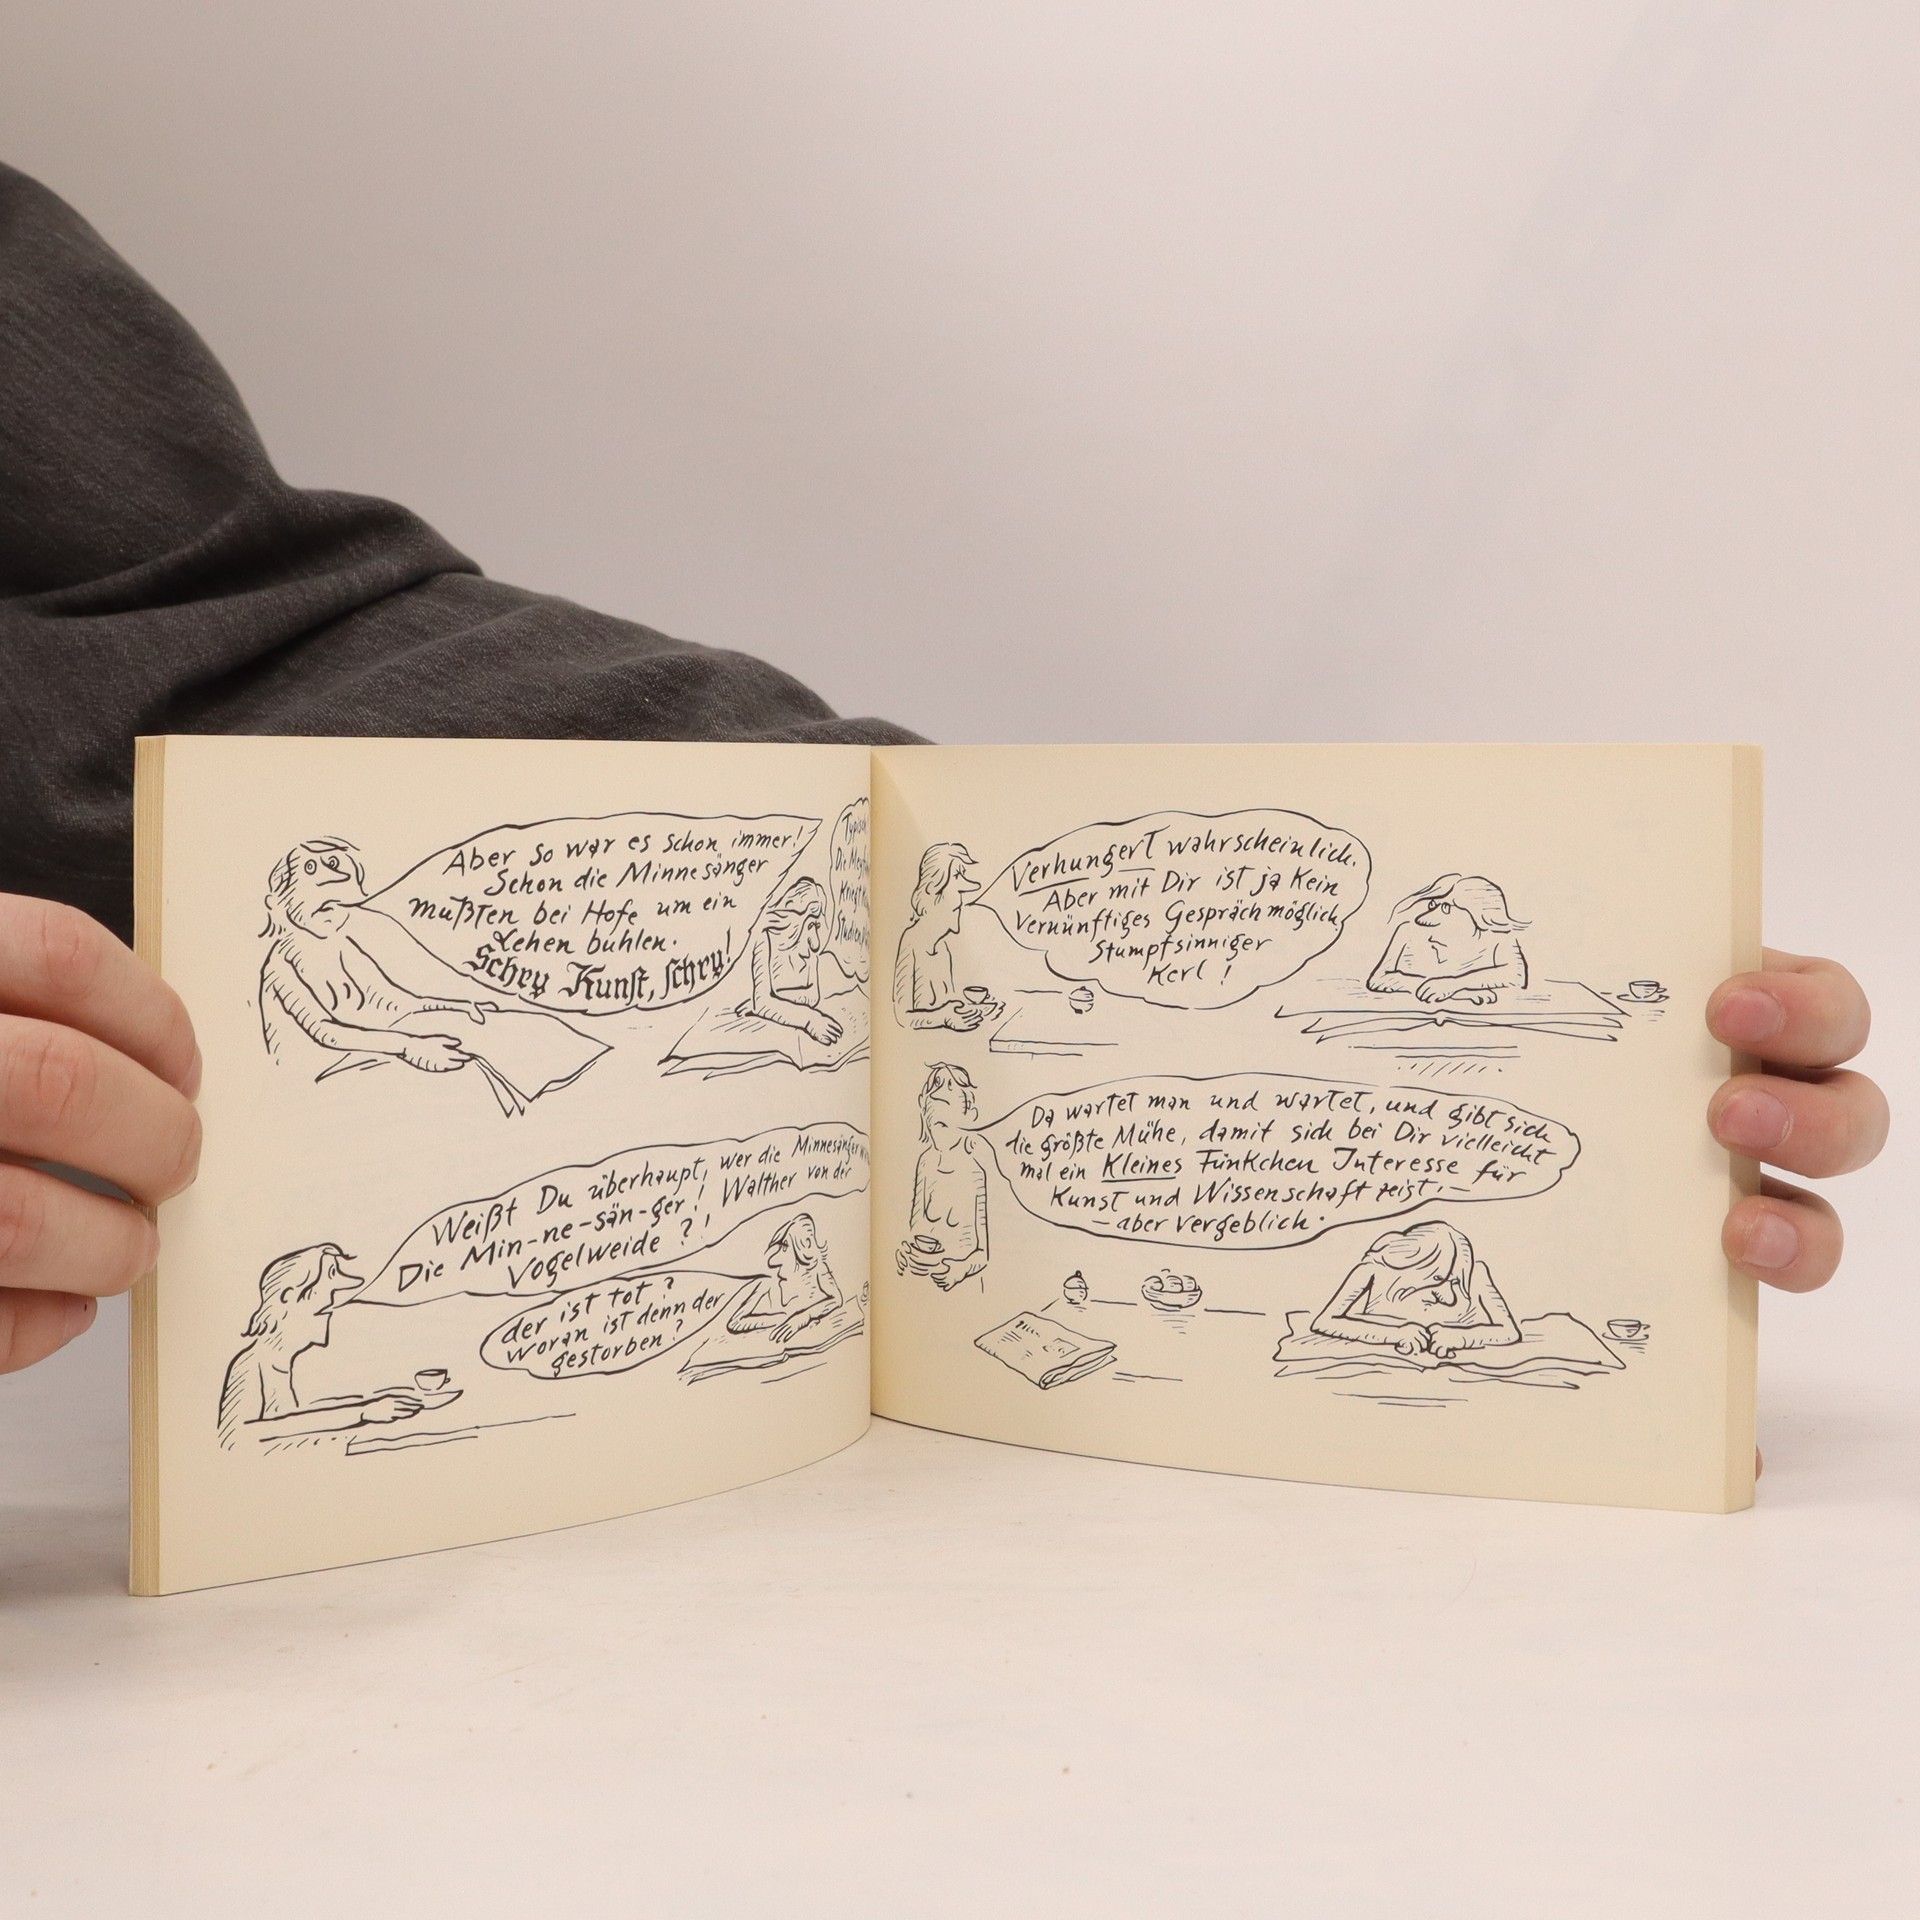 Aber so war es schon immer!
Schon die Minnesänger
mußten bei Hofe um ein
Lehen buhlen.
Schry Kunst, schry!
Typisch
Weißt Du überhaupt, wer die Minnesänger
Die Min-ne-sän-ger! Walther von der
Vogelweide ?!
der ist tot?
woran ist denn der
gestorben?
Verhungert wahrscheinlich.
Aber mit Dir ist ja Kein
Vernünftiges Gespräch möglich,
Stumpfsinniger
Kerl!
Da wartet man und wartet, und gibt sich
die größte Mühe, damit sich bei Dir vielleicht
mal ein Kleines Fünkchen Interesse für
Kunst und Wissenschaft zeigt, –
– aber vergeblich.